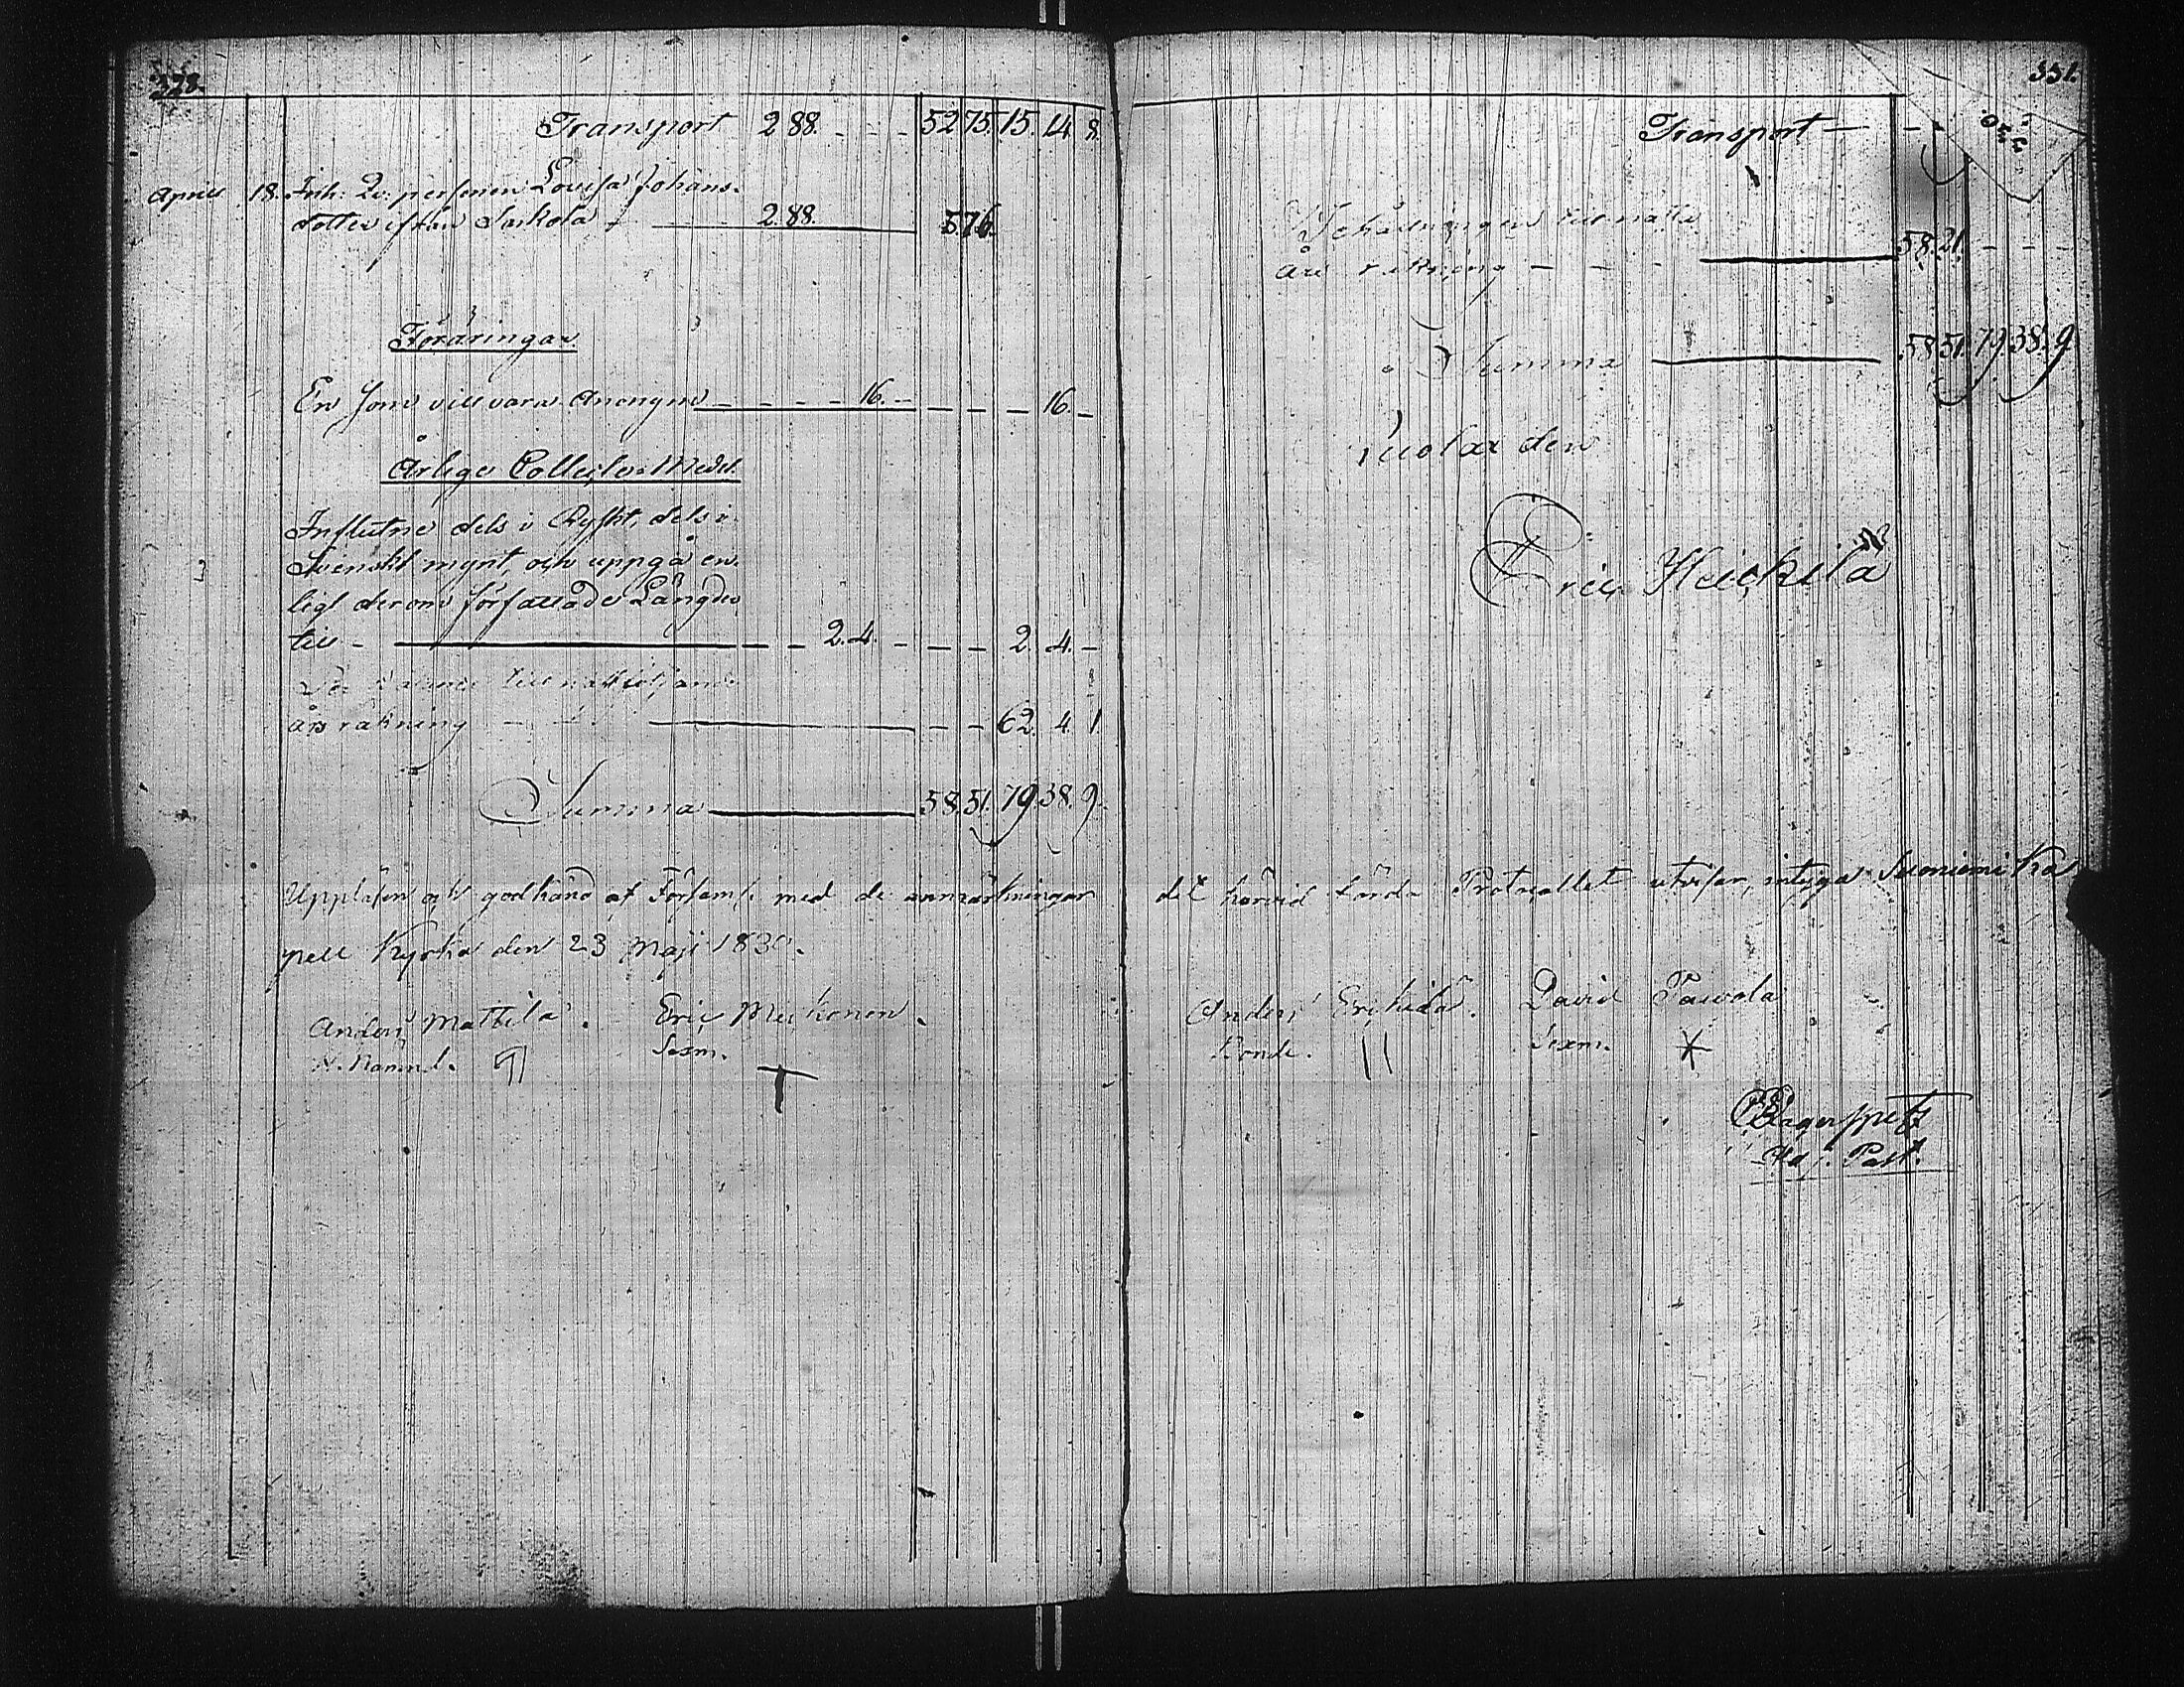 328.
Transport 288. - - - 52 75. 15. 14. 8.
Aprill 18. Inh. Qv. personen Lovisa Johans-
dotter ifrån Sarkola 288. 5 76.
Föräringar
En som vill vara Anonym - - - - 16. - - - - 16. -
Årlige Collecte Medel.
Influtne dels i Ryskt, dels i
Svenskt mynt och uppgå en-
ligt derom författade Längder
till - - - 2. 4. - - - 2. 4. -
års räkning - - - - 62. 4. 1.
Summa 58. 51. 79. 38. 9.
Uppläsen och godkänd af Församl. med de anmärkningar
pell Kyrka den 23 Maji 1830.
Anders Mattila. Eric Meckonen.
Sexm.
331.
Transport - - -
till nästa
års räkning - - - 58. 21. - - -
Summa 58 51. 79 38. 9
den
Eric Heickilä
det härvid förda Protocollet utvisar, intyga Suoniemi Ka
Anders Erckilä. David Pawola
Bonde. Sexm.
Lagerspetz
Adj. Past.